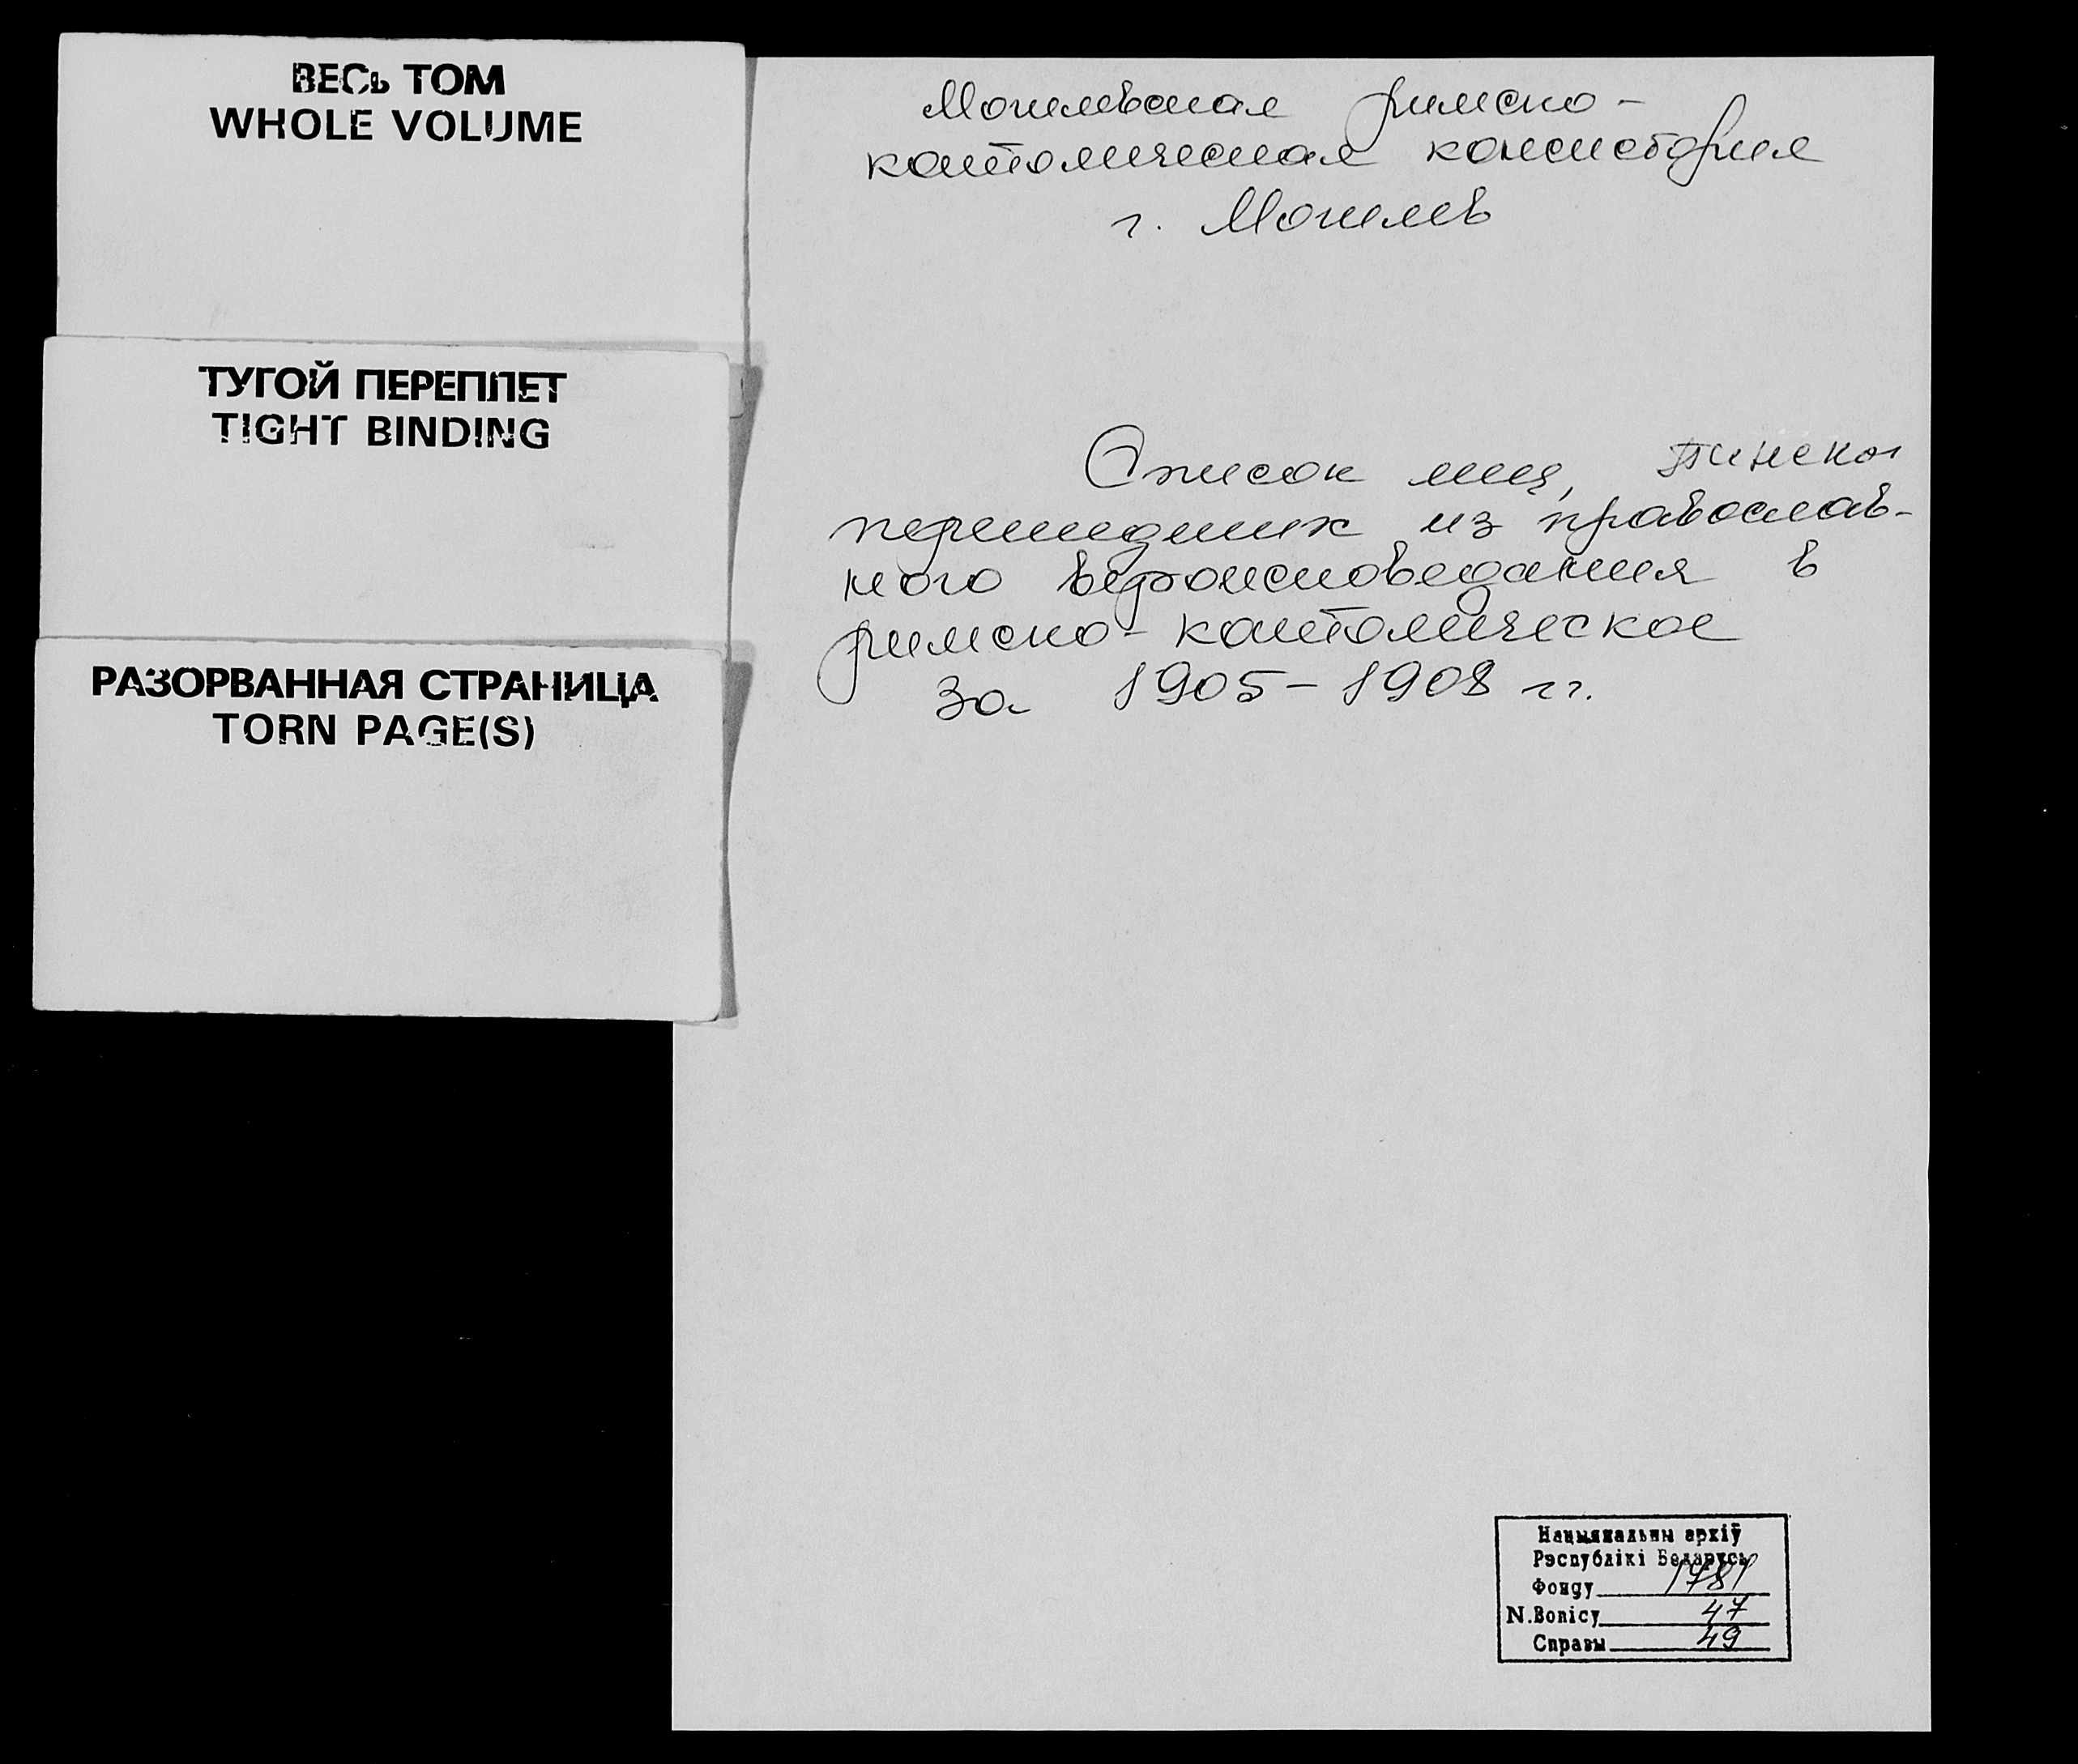 ВЕСЬ ТОМ
WHOLE VOLUME
ТУГОЙ ПЕРЕПЛЕТ
TIGHT BINDING
РАЗОРВАННАЯ СТРАНИЦА
TORN PAGE(S)
Могилевская римско-
католическая консистория
г. Могилев
Список лиц,
перешедших из православ-
ного вероисповедания в
римско-католическое
за 1905-1908 гг.
Нацыянальны архіў
Рэспублікі Беларусь
Фонду 1781
N.Вопісу 47
Справы 49